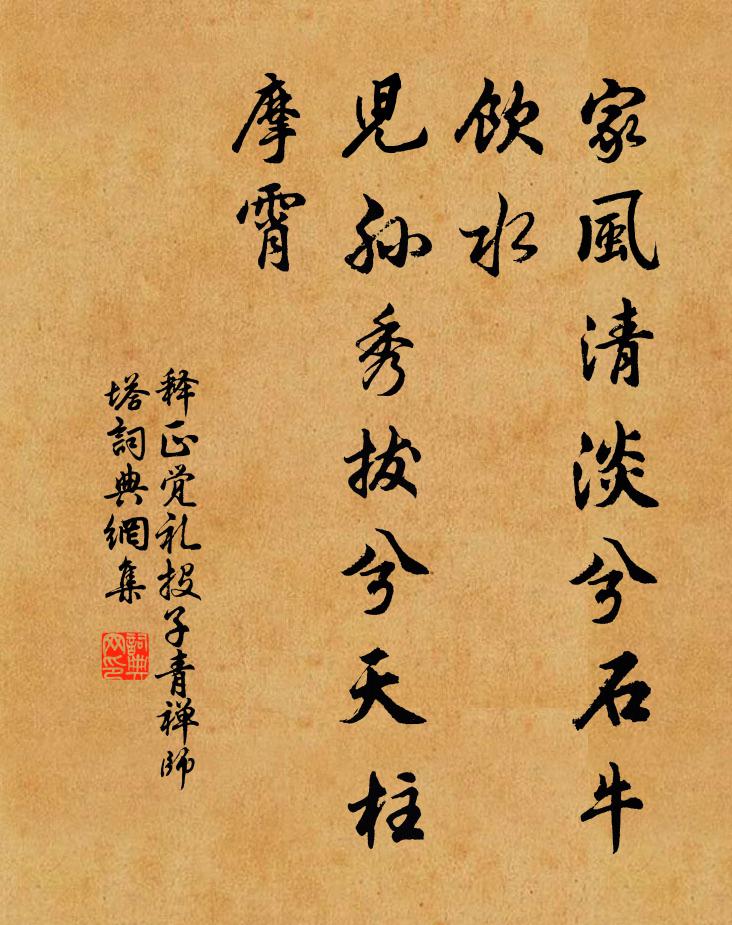 家風清淡兮石牛
飲水
児孫秀拔兮天柱
摩霄
释正觉礼投子青禅師
塔詞典網集
詞典
网印